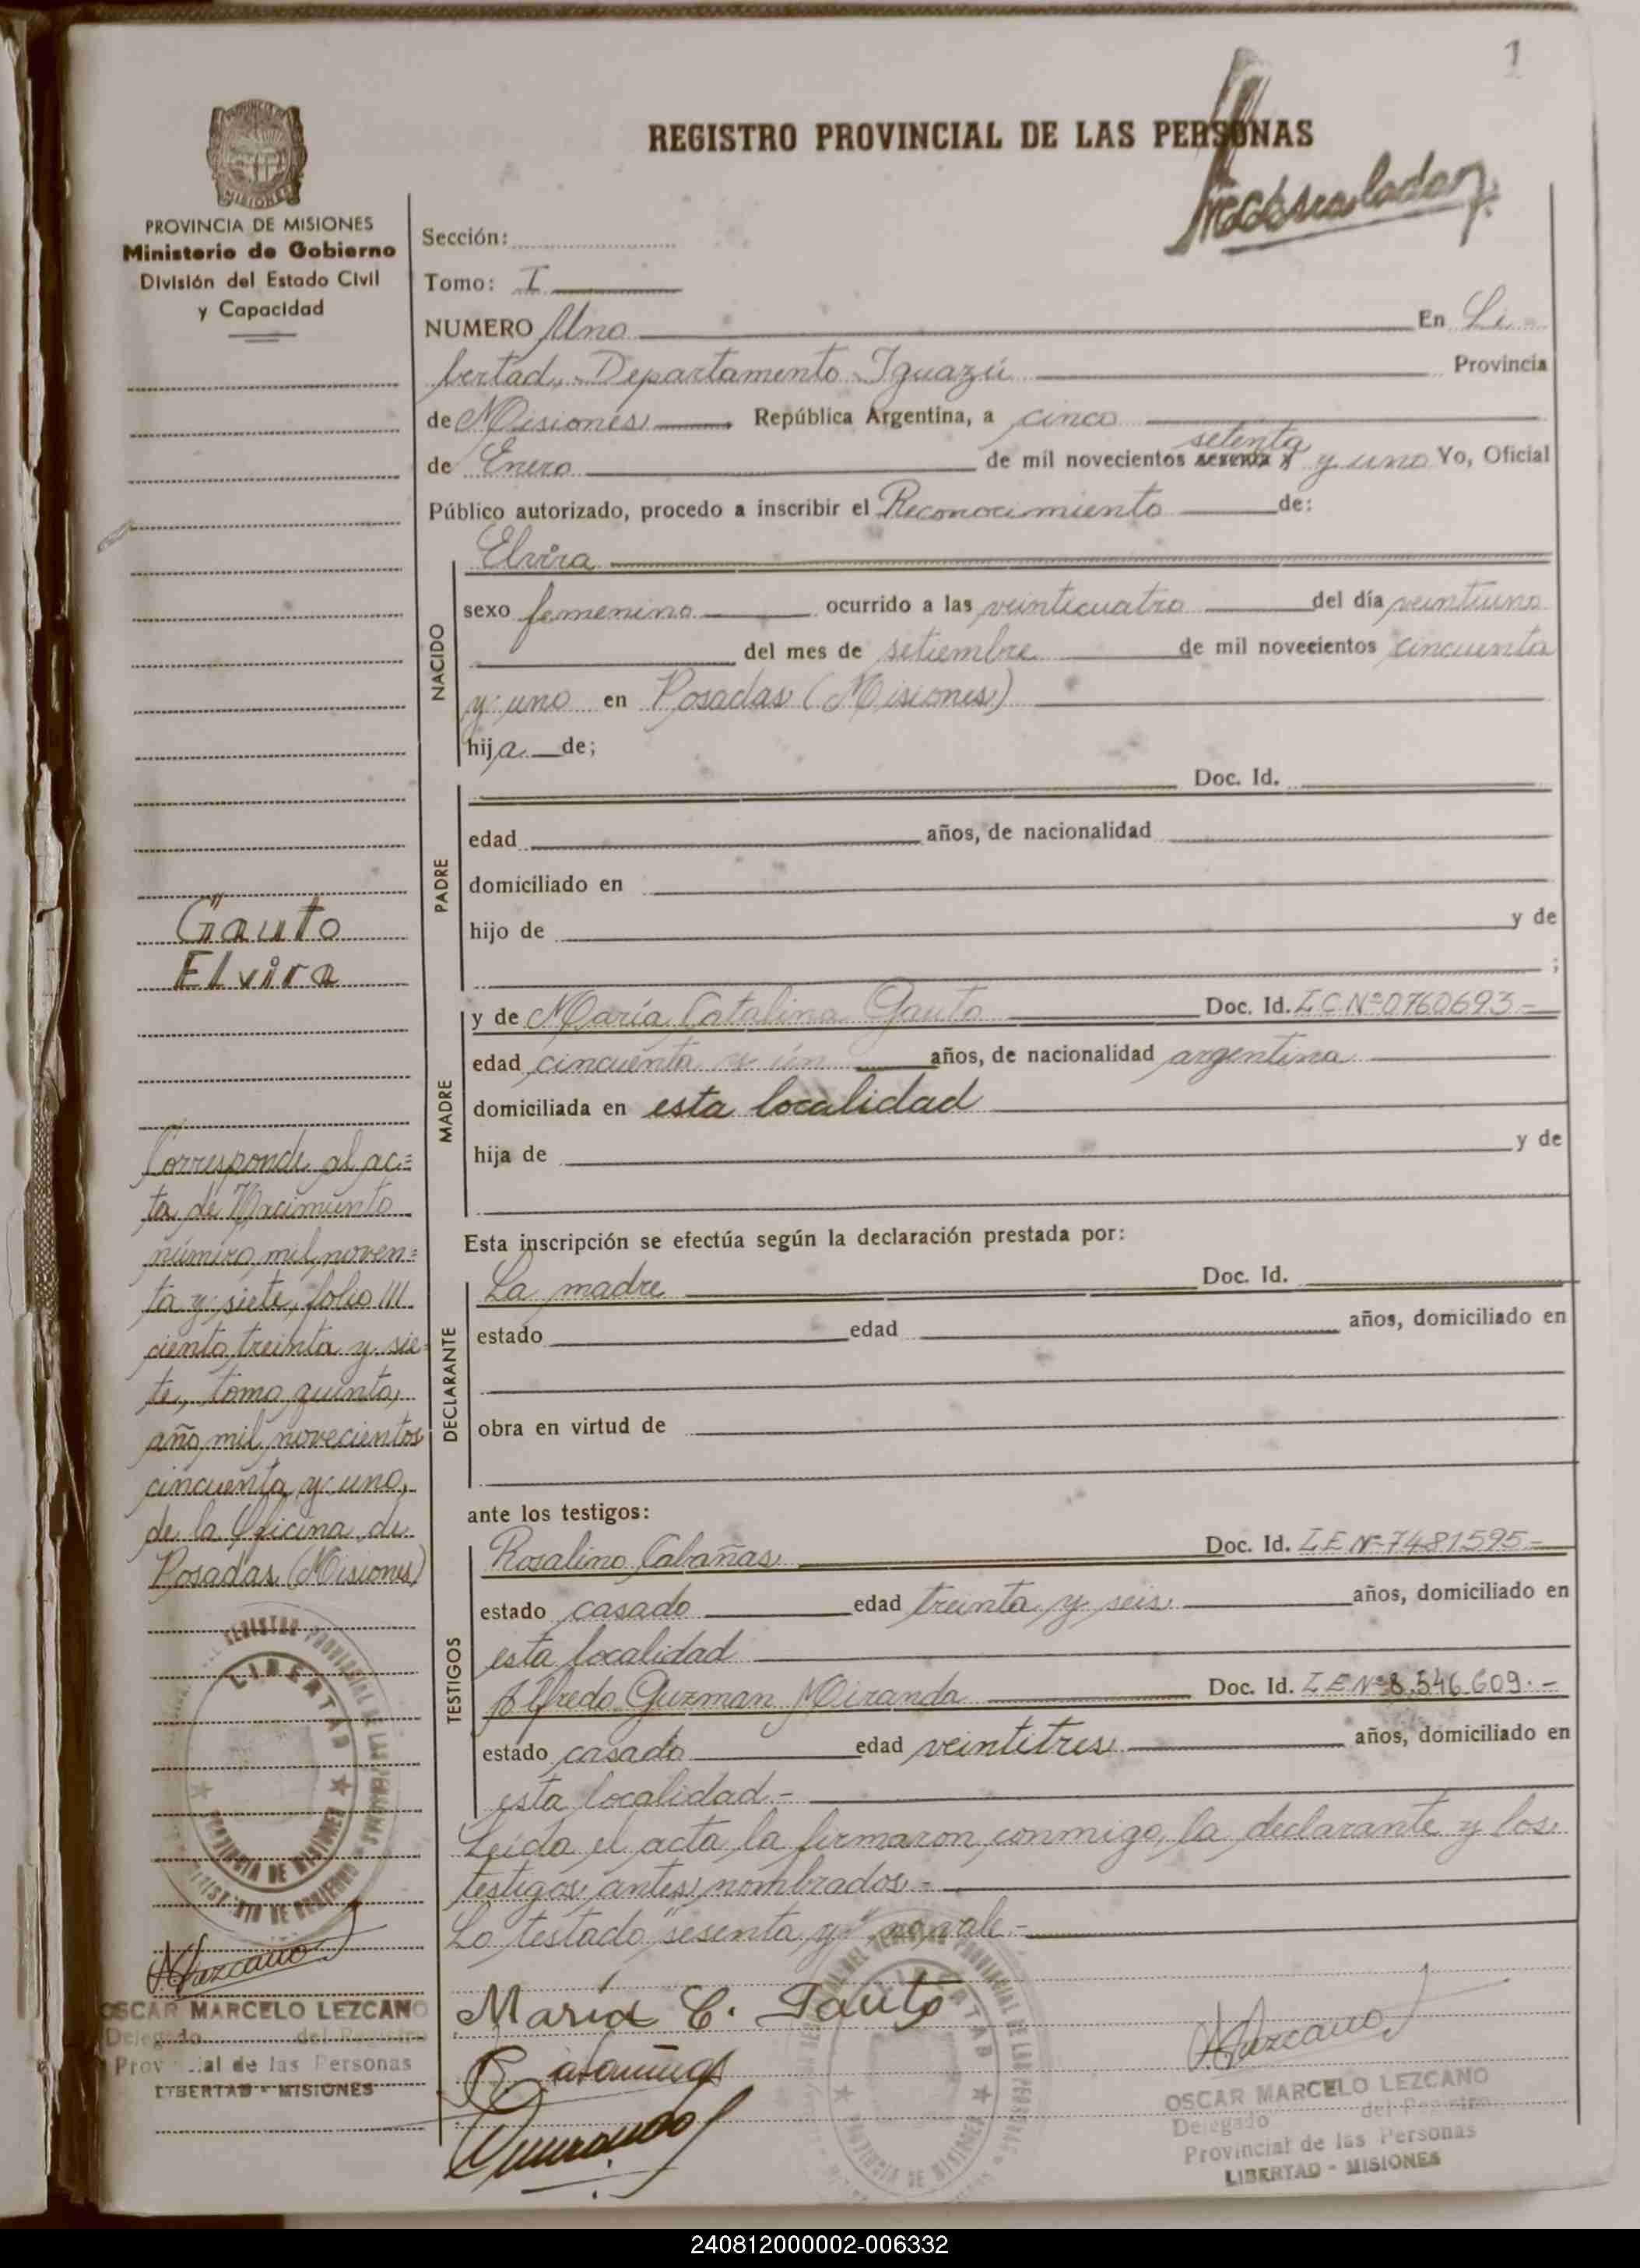 1
REGISTRO PROVINCIAL DE LAS PERSONAS
PROVINCIA DE MISIONES
Ministerio de Gobierno
División del Estado Civil
y Capacidad
Sección:
Tomo: I
NUMERO Uno En Li-
bertad, Departamento Iguazú Provincia
de Misiones República Argentina, a cinco
setenta
de Enero de mil novecientos sesenta y y uno Yo, Oficial
Público autorizado, procedo a inscribir el Reconocimiento de:
NACIDO
Elvira
sexo femenino ocurrido a las veinticuatro del día veintiuno
del mes de setiembre de mil novecientos cincuenta
y uno en Posadas (Misiones)
hija de;
PADRE
Doc. Id.
edad años, de nacionalidad
domiciliado en
hijo de y de
;
Gauto
Elvira
MADRE
y de María Catalina Gauto Doc. Id. LC Nº 0760693-
edad cincuenta y un años, de nacionalidad argentina
domiciliada en esta localidad
hija de y de
Esta inscripción se efectúa según la declaración prestada por:
DECLARANTE
La madre Doc. Id.
estado edad años, domiciliado en
obra en virtud de
Corresponde al ac=
ta de Nacimiento
número mil noven=
ta y siete, folio ///
ciento treinta y sie
te, tomo quinto,
año mil novecientos
cincuenta y uno,
de la Oficina de
Posadas (Misiones)
ante los testigos:
TESTIGOS
Rosalino Cabañas Doc. Id. LE Nº 7481595-
estado casado edad treinta y seis años, domiciliado en
esta localidad
Alfredo Guzman Miranda Doc. Id. LE Nº 8.546.609.-
estado casado edad veintitres años, domiciliado en
esta localidad.-
Leída el acta, la firmaron conmigo, la declarante y los
testigos antes nombrados.-
Lo testado "sesenta y" no vale.-
LIBERTAD
PROVINCIA DE MISIONES
María C. Gauto
OSCAR MARCELO LEZCANO
Delegado del Registro
Provincial de las Personas
LIBERTAD - MISIONES
LIBERTAD
PROVINCIA DE MISIONES
OSCAR MARCELO LEZCANO
Delegado del Registro
Provincial de las Personas
LIBERTAD - MISIONES
240812000002-006332